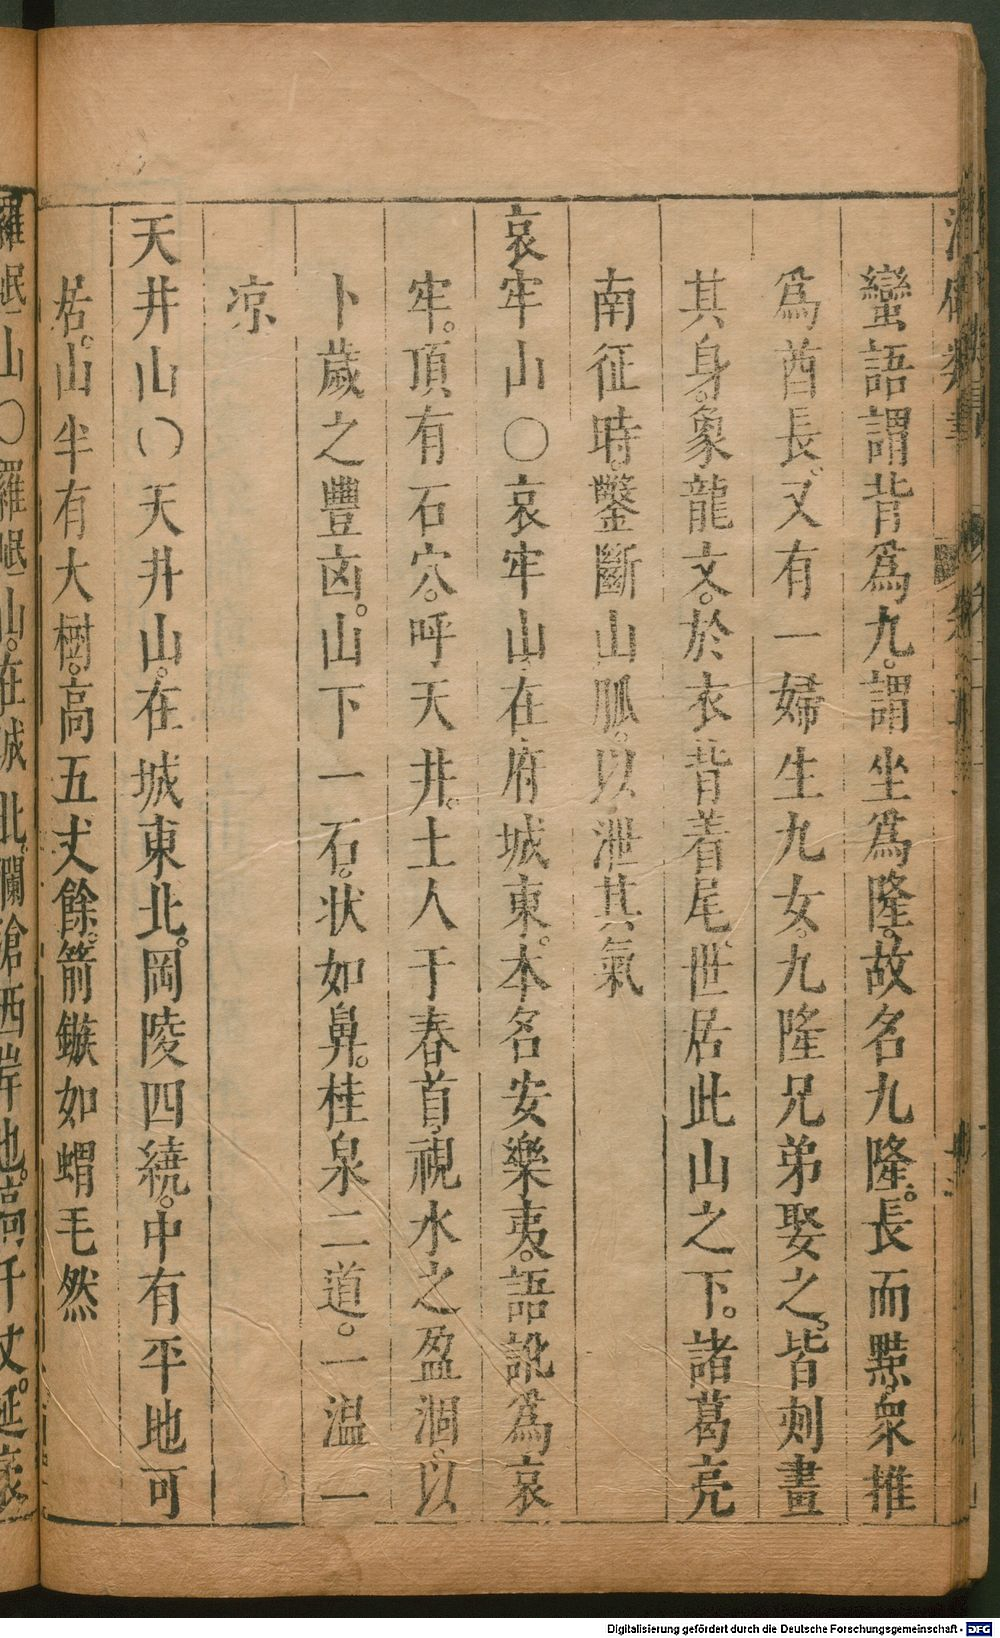 蠻語謂背爲九。謂坐爲隆。故名九隆。長而黠。衆推
爲酋長。又有一婦生九女。九隆兄弟娶之。皆刻畫
其身。象龍文。於衣背着尾。世居此山之下。諸葛亮
南征時。鑿斷山脈。以泄其氣
哀牢山〇哀牢山。在府城東。本名安樂夷。語訛爲哀
牢。頂有石穴。呼天井。土人于春首。視水之盈涸。以
卜歲之豐凶。山下一石。状如鼻。桂泉二道。一温一
凉
天井山〇天井山。在城東北。岡陵四繞。中有平地可
居。山半有大樹。高五丈餘。箭鏃如蝟毛然
羅岷山〇羅岷山。在城北。瀾滄西岸也。高千丈。延袤
Digitalisierung gefördert durch die Deutsche Forschungsgemeinschaft - DFG